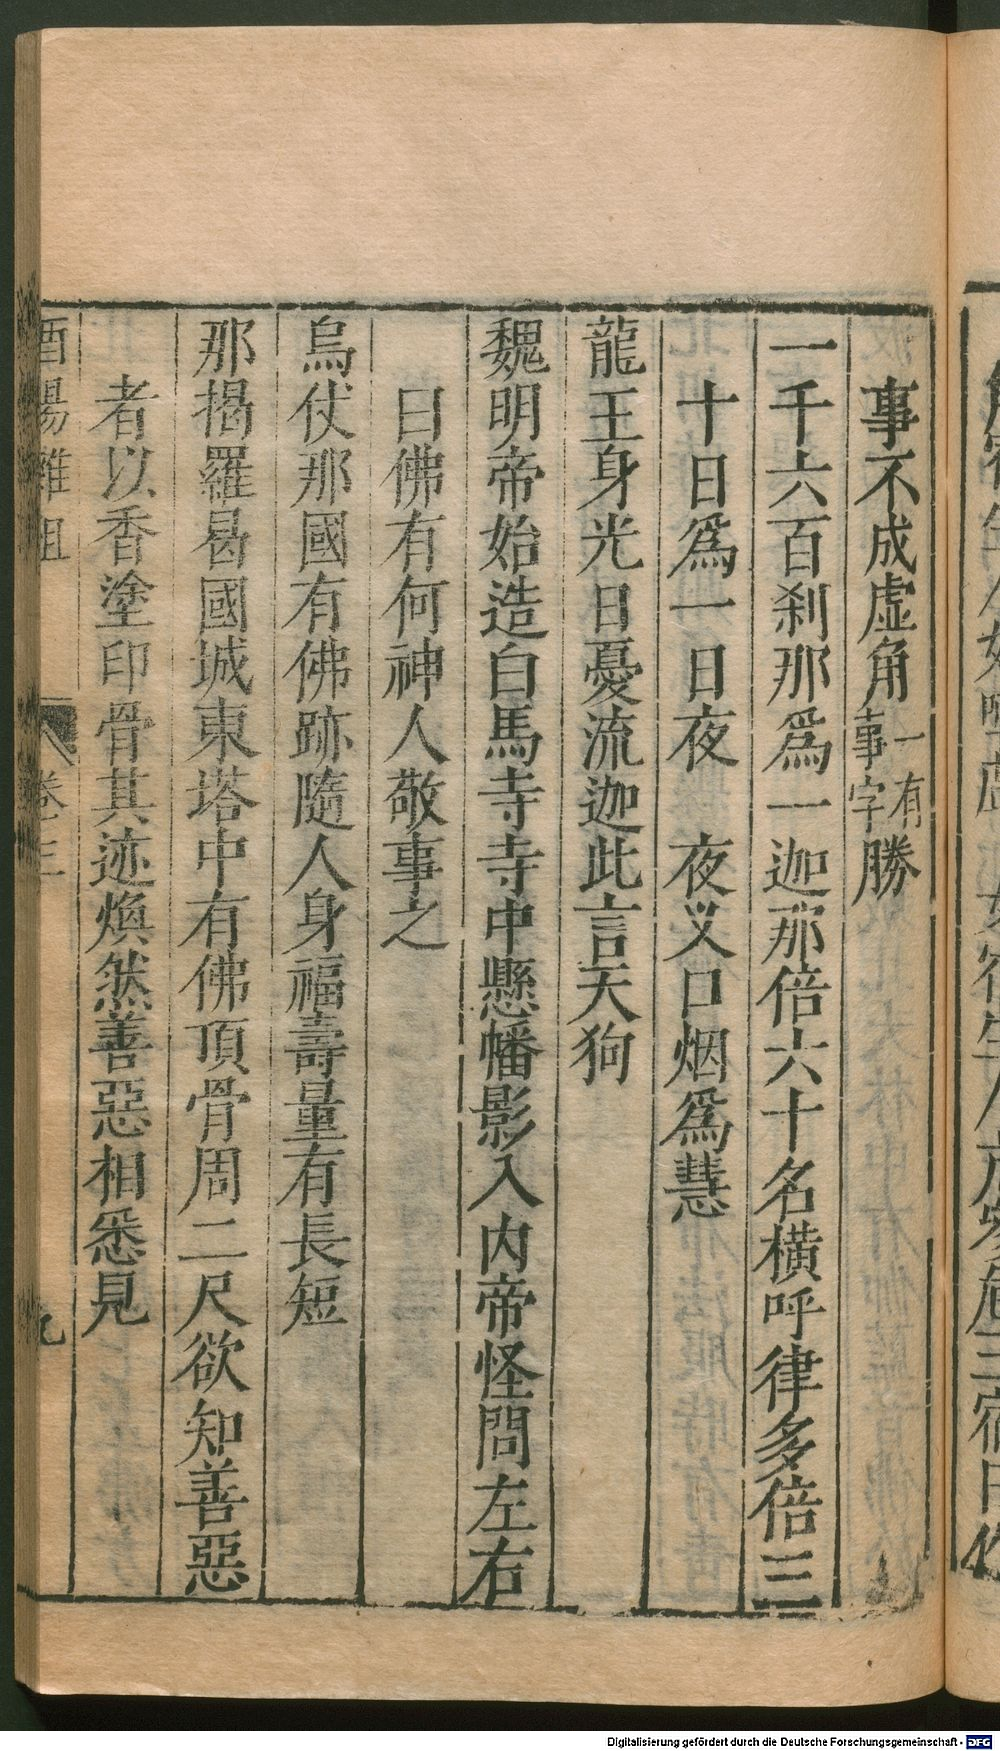 事不成虚角一有事字勝
一千六百刹那爲一迦那倍六十名橫呼律多倍三
十日爲一日夜　夜叉口烟爲慧
龍王身光曰憂流迦此言天狗
魏明帝始造白馬寺寺中懸幡影入内帝怪問左右
曰佛有何神人敬事之
烏仗那國有佛跡隨人身福壽量有長短
那揭羅曷國城東塔中有佛頂骨周二尺欲知善惡
者以香塗印骨其迹煥然善惡相悉見
酉陽雜俎
卷三
九
Digitalisierung gefördert durch die Deutsche Forschungsgemeinschaft - DFG